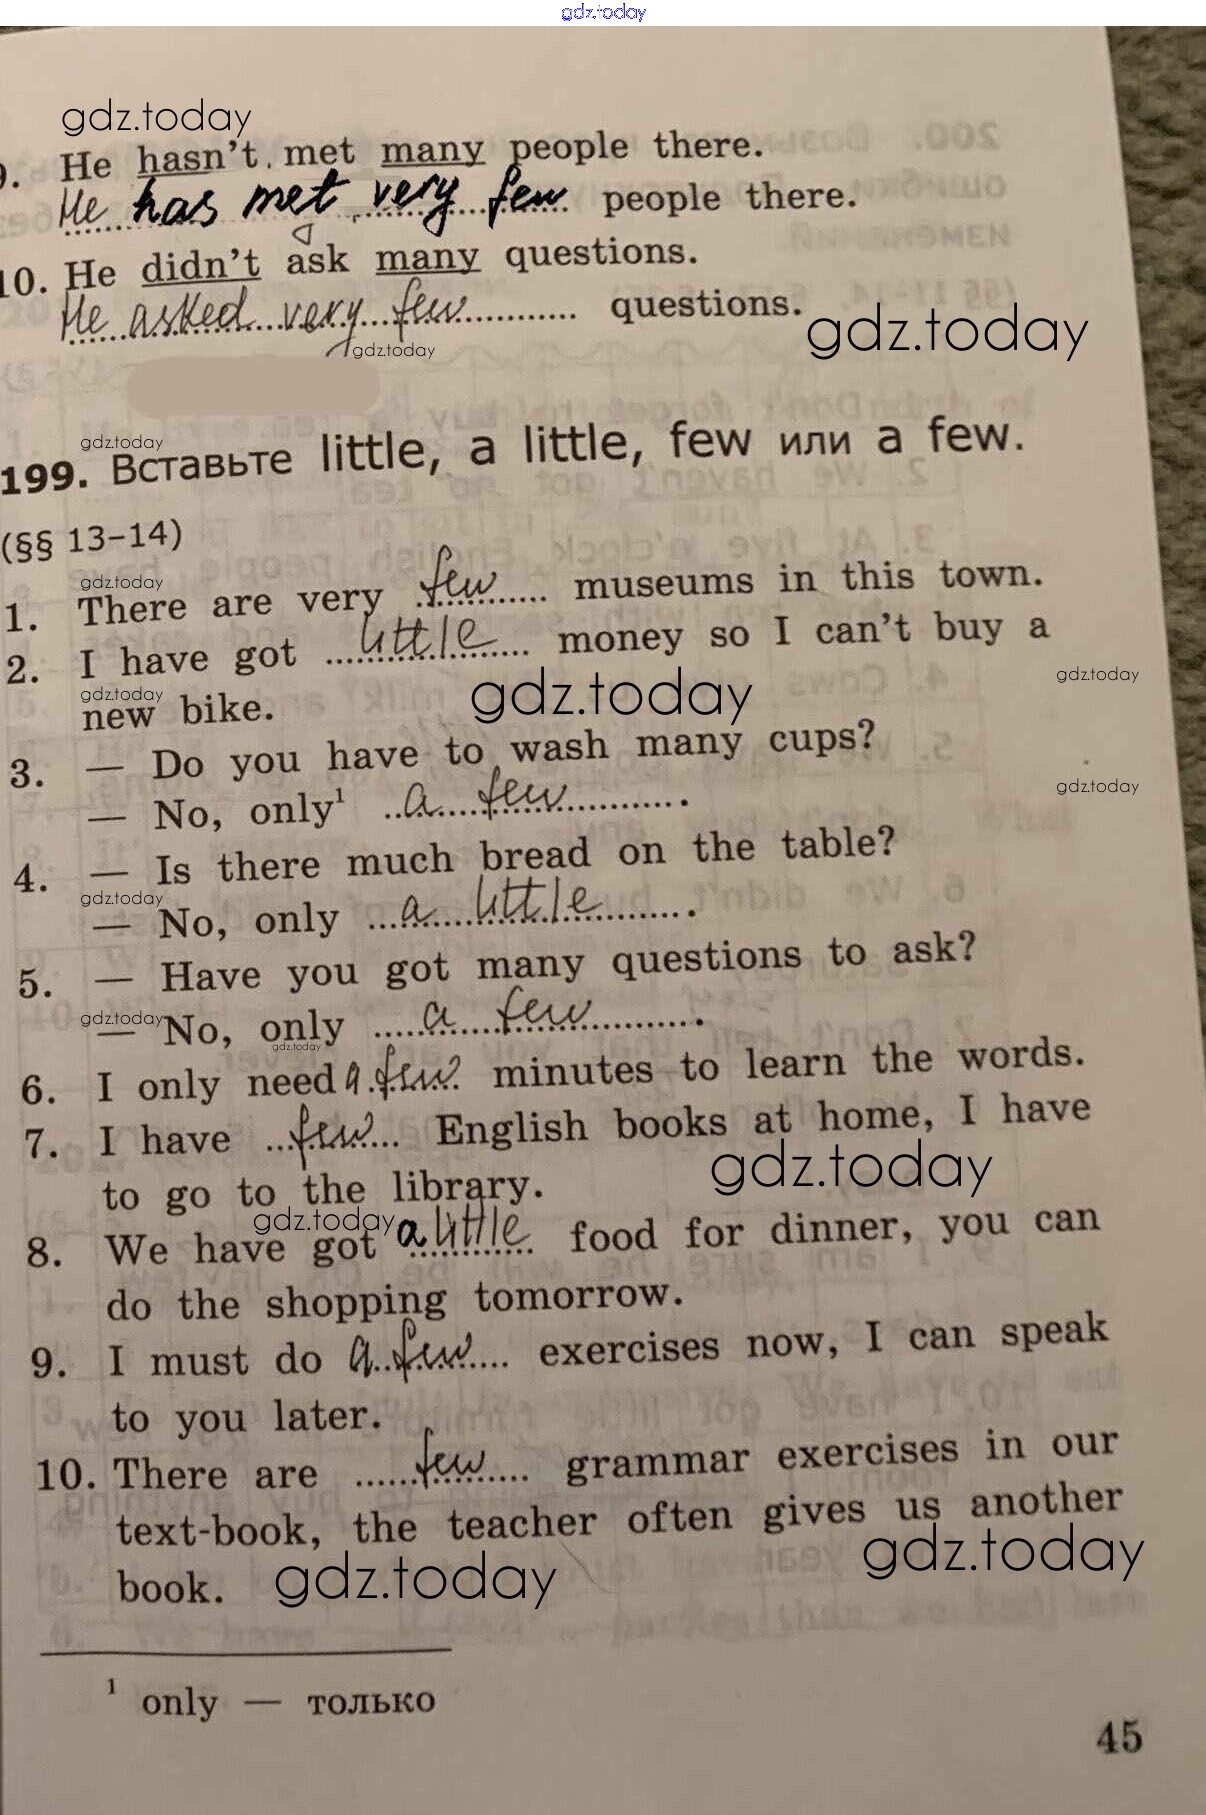 gdz.today
gdz.today
9. He hasn't met many people there.
He has met very few people there.
10. He didn't ask many questions.
He asked very few questions.
gdz.today
gdz.today
gdz.today
199. Вставьте little, a little, few или a few.
(§§ 13–14)
gdz.today
1. There are very few museums in this town.
2. I have got little money so I can't buy a
gdz.today
gdz.today
gdz.today
new bike.
3. — Do you have to wash many cups?
gdz.today
— No, only¹ a few.
4. — Is there much bread on the table?
gdz.today
— No, only a little.
5. — Have you got many questions to ask?
gdz.today
— No, only a few.
gdz.today
6. I only need a few minutes to learn the words.
7. I have few English books at home, I have
gdz.today
to go to the library.
gdz.today
8. We have got a little food for dinner, you can
do the shopping tomorrow.
9. I must do a few exercises now, I can speak
to you later.
10. There are few grammar exercises in our
text-book, the teacher often gives us another
gdz.today
book. gdz.today
¹ only — только
45